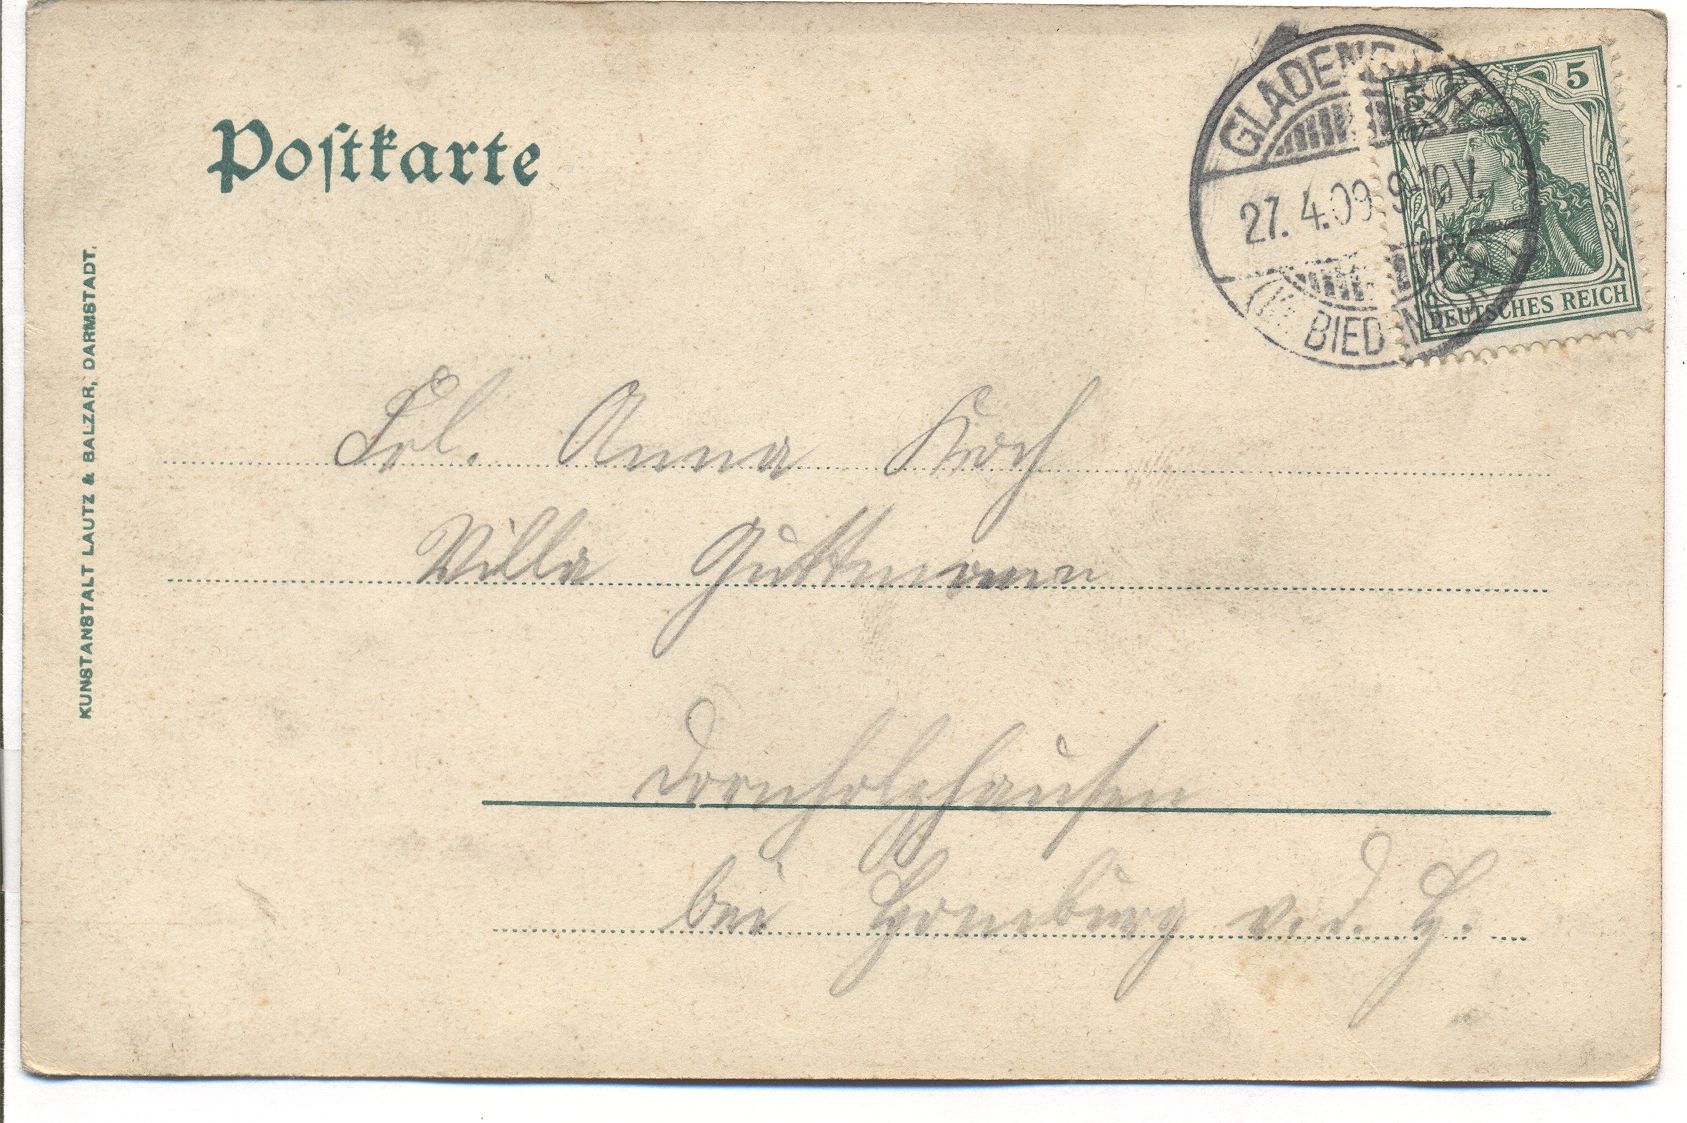 Postkarte
GLADENBACH
27.4.09 9-10V.
BIEDENK
5 5
DEUTSCHES REICH
KUNSTANSTALT LAUTZ & BALZAR, DARMSTADT.
Frl. Anna Koch
Villa Guttmann
Dornholzhausen
bei Homburg v. d. H.